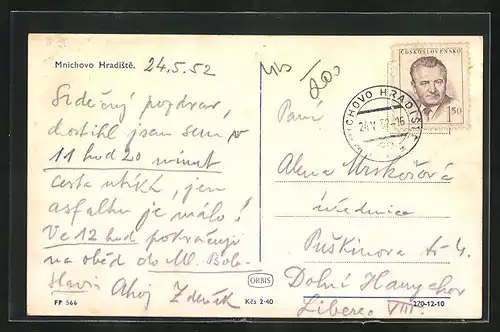 Mnichovo Hradiště. 24.5.52
Srdečný pozdrav,
dostihl jsem sem v
11 hod 20 minut
cesta utíká, jen
asfaltu je málo!
Ve 12 hod pokračuji
na oběd do Ml. Bole-
slavi. Ahoj Zdeněk
FP 566
ORBIS
Kčs 2·40
270-12-10
ČESKOSLOVENSKO
1.50
MNICHOVO HRADIŠTĚ
24.V.52-16
Paní
Alena
úřednice
Puškinova 4.
Dolní Hanychov
Liberec VIII.